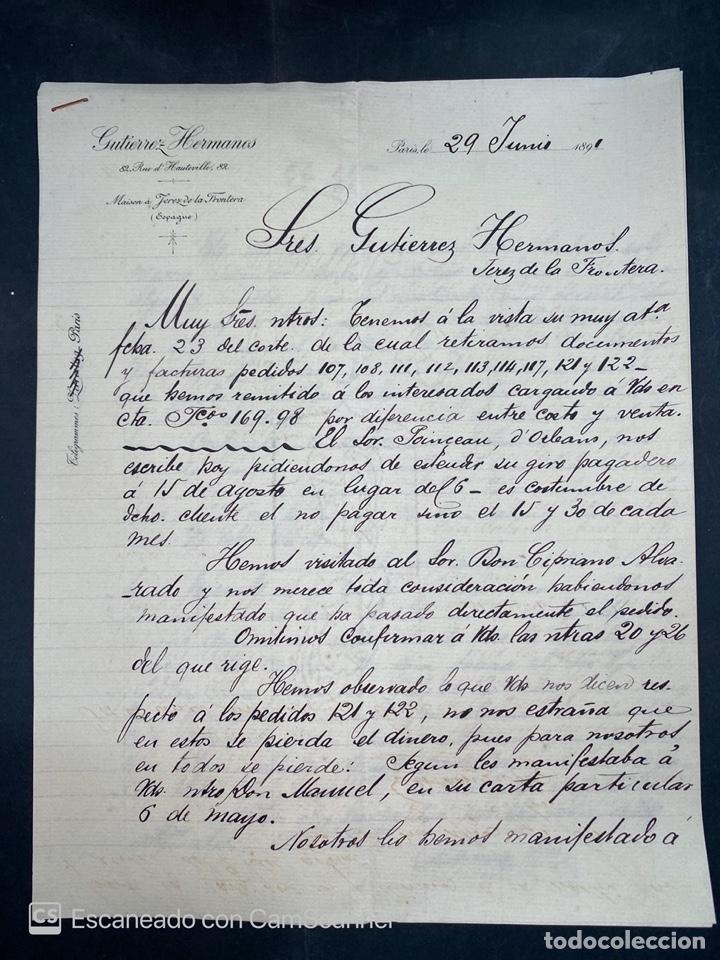 Gutierrez Hermanos
82, Rue d'Hauteville, 82
Maison à Jerez de la Frontera
(Espagne)
Paris, le 29 Junio 1891
Sres. Gutierrez Hermanos.
Jerez de la Frontera.
Telegrammes: Paris
Muy Sres. ntros: Tenemos á la vista su muy atª
fcha. 23 del corte. de la cual retiramos documentos
y facturas pedidos 107, 108, 111, 112, 113, 114, 117, 121 y 122_
que hemos remitido á los interesados cargando á Vds en
cta. Fcos 169.98 por diferencia entre costo y venta.
El Sor. Poinceau, d'Orleans, nos
escribe hoy pidiendonos de estender su giro pagadero
á 15 de agosto en lugar del 6_ es costumbre de
dcho. cliente el no pagar sino el 15 y 30 de cada
mes.
Hemos visitado al Sor. Don Cipriano Alva-
-rado y nos merece toda consideración habiendonos
manifestado que ha pasado directamente el pedido.
Omitimos confirmar á Vds. las ntras 20 y 26
del que rige.
Hemos observado lo que Vds nos dicen res-
pecto á los pedidos 121 y 122, no nos estraña que
en estos se pierda el dinero, pues para nosotros
en todos se pierde: Segun les manifestaba á
Vds. ntro Don Manuel, en su carta particular
6 de mayo.
Nosotros les hemos manifestado á
CS Escaneado con CamScanner
todocoleccion
todocoleccion.net